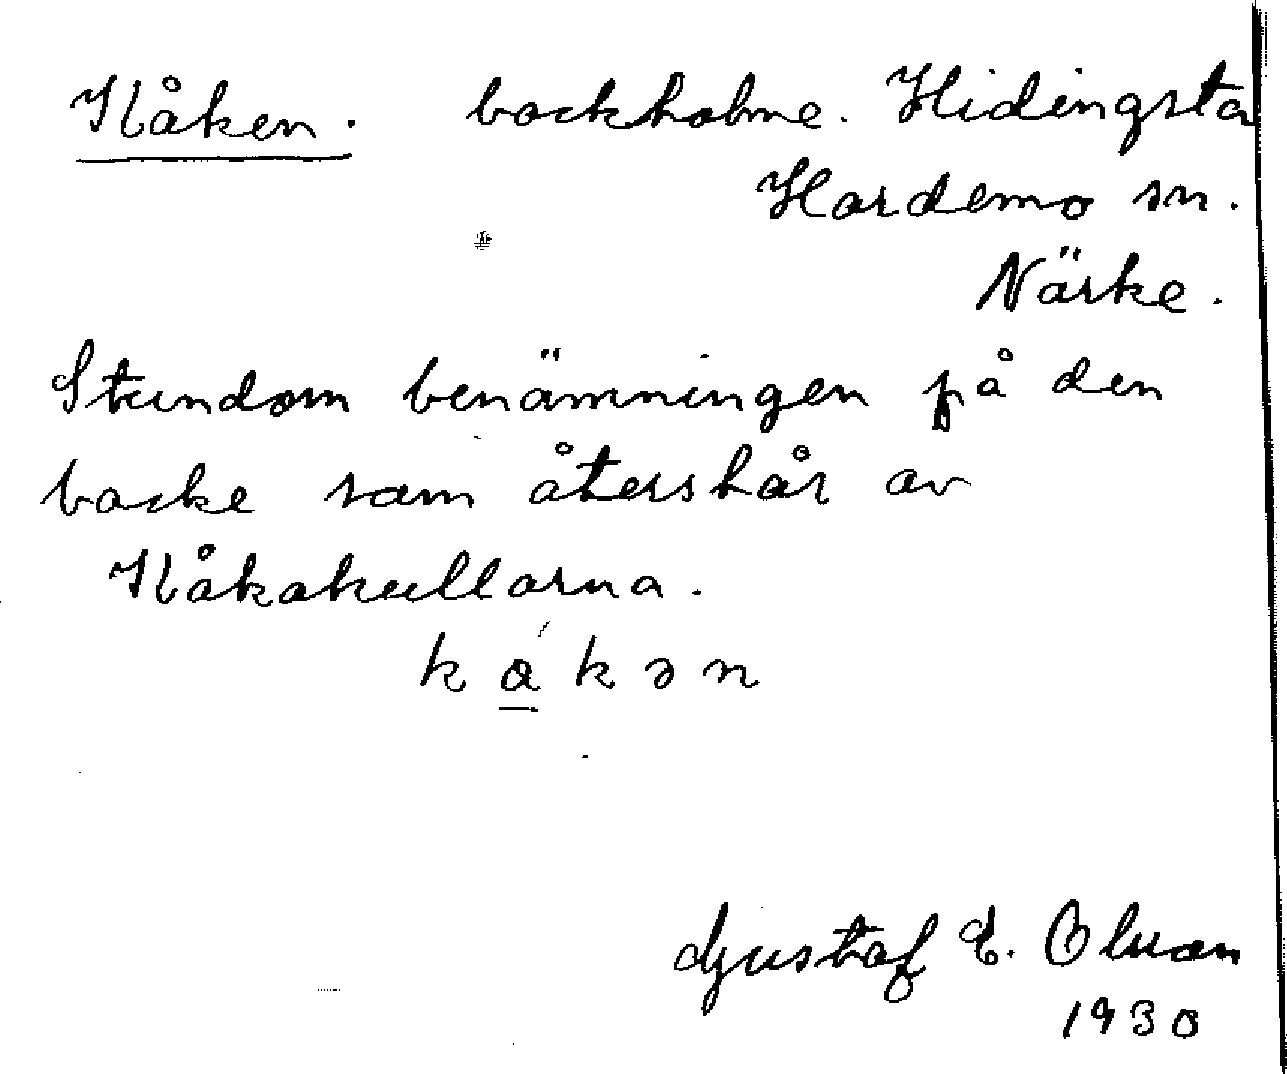 Kåken. backholme. Hidingsta
Hardemo sn.
Närke.
Stundom benämningen på den
backe som återstår av
Kåkakullarna.
ka̲´kən
Gustaf E. Olsson
1930